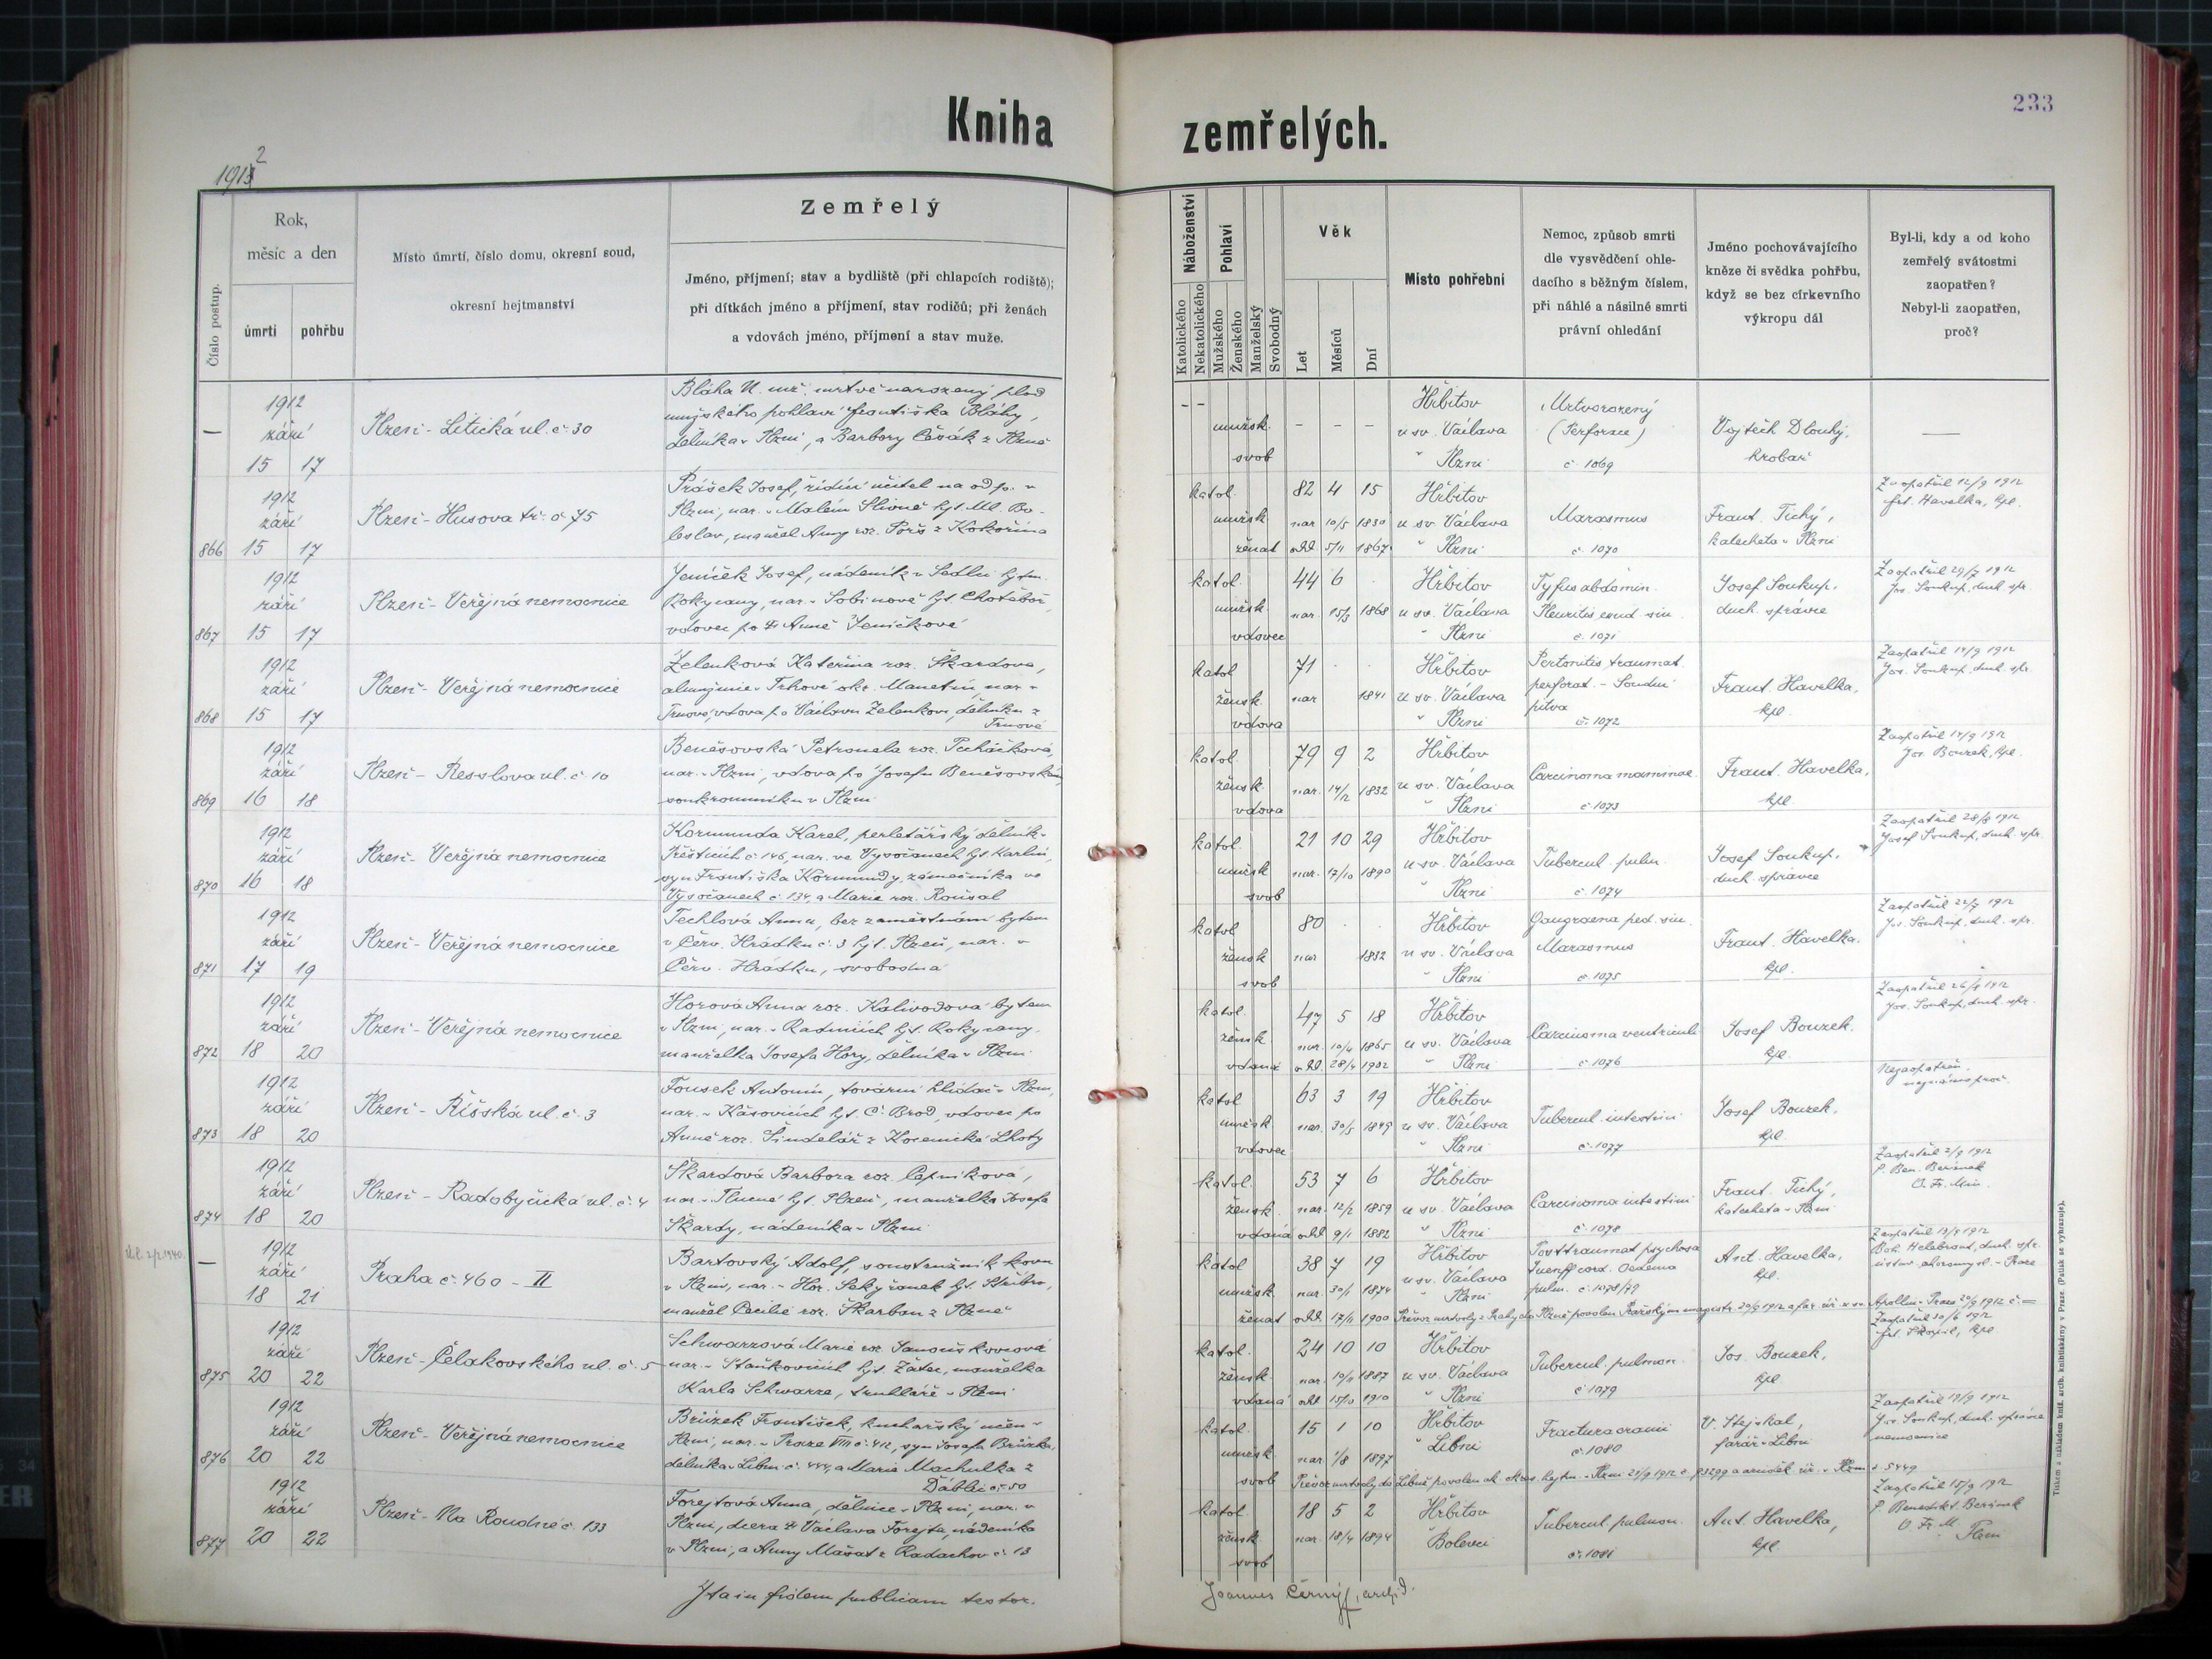 Kniha
zemřelých.
233
1912
Číslo postup.
Rok,
měsíc a den
úmrtí
pohřbu
Místo úmrtí, číslo domu, okresní soud,
okresní hejtmanství
Zemřelý
Jméno, příjmení; stav a bydliště (při chlapcích rodiště);
při dítkách jméno a příjmení, stav rodičů; při ženách
a vdovách jméno, příjmení a stav muže.
Náboženství
Katolického
Nekatolického
Pohlaví
Mužského
Ženského
Manželský
Svobodný
Věk
Let
Měsíců
Dní
Místo pohřební
Nemoc, způsob smrti
dle vysvědčení ohle-
dacího s běžným číslem,
při náhlé a násilné smrti
právní ohledání
Jméno pochovávajícího
kněze či svědka pohřbu,
když se bez církevního
výkropu dál
Byl-li, kdy a od koho
zemřelý svátostmi
zaopatřen?
Nebyl-li zaopatřen,
proč?
—
1912
září
15 17
Plzeň - Litická ul. č. 30
Bláha N. mrtvě narozený plod
mužského pohlaví Františka Bláhy,
dělníka v Plzni, a Barbory Čěsák z Plzně
mužsk.
svob
– – –
Hřbitov
u sv. Václava
v Plzni
Mrtvorozený
(Perforace)
č. 1069
Vojtěch Dlouhý,
hrobař
—
866
1912
září
15 17
Plzeň - Husova tř. č. 75
Prášek Josef, řídící učitel na odp. v
Plzni, nar. v Malém Slivně hjt. Ml. Bo-
leslav, manžel Anny roz. Porš z Kokořína
katol.
mužsk
ženat
82 4 15
nar 10/5 1830
odd. 5/11 1867
Hřbitov
u sv. Václava
v Plzni
Marasmus
č. 1070
Frant. Tichý,
katecheta v Plzni
Zaopatřil 12/9 1912
Frt. Havelka, kpl.
867
1912
září
15 17
Plzeň - Veřejná nemocnice
Jeníček Josef, nádeník v Sedlci hjtm.
Rokycany, nar. v Sobinově hjt Chotěboř,
vdovec po † Anně Jeníčkové
katol.
mužsk.
vdovec
44 6
nar. 15/3 1868
Hřbitov
u sv. Václava
v Plzni
Tyfus abdomin.
Pleuritis exud sin.
č. 1071
Josef Soukup,
duch. správce
Zaopatřil 29/7 1912
Jos. Soukup, duch. spr.
868
1912
září
15 17
Plzeň - Veřejná nemocnice
Zelenková Kateřina roz. Škardova,
almužnice v Trhové okr. Manetín, nar. v
Trnové, vdova po Václavu Zelenkovi, dělníku z
Trnové
katol
žensk.
vdova
71
nar 1841
Hřbitov
u sv. Václava
v Plzni
Pertonitis traumat.
perforat. - Soudní
pitva
č. 1072
Frant. Havelka,
kpl.
Zaopatřil 14/9 1912
Jos. Soukup, duch. spr.
869
1912
září
16 18
Plzeň - Resslova ul. č. 10
Benešovská Petronela roz. Pecháčková,
nar. v Plzni, vdova po Josefu Benešovském,
soukromníku v Plzni
katol.
žensk.
vdova
79 9 2
nar. 14/12 1832
Hřbitov
u sv. Václava
v Plzni
Carcinoma mammae.
č. 1073
Frant. Havelka,
kpl.
Zaopatřil 14/9 1912
Jos. Bouzek, kpl.
870
1912
září
16 18
Plzeň - Veřejná nemocnice
Kormunda Karel, perletářský dělník v
Přešticích č. 146, nar. ve Vysočanech hjt. Karlín,
syn Františka Kormundy, zámečníka ve
Vysočanech č. 134, a Marie roz. Rousal
katol.
mužsk
svob
21 10 29
nar. 17/10 1890
Hřbitov
u sv. Václava
v Plzni
Tubercul. pulm.
č. 1074
Josef Soukup,
duch. správce
Zaopatřil 28/8 1912
Josef Soukup, duch. spr.
871
1912
září
17 19
Plzeň - Veřejná nemocnice
Techlová Anna, bez zaměstnání bytem
v Červ. Hrádku č. 3 hjt. Plzeň, nar. v
Červ. Hrádku, svobodná
katol
žensk
svob
80
nar 1832
Hřbitov
u sv. Václava
v Plzni
Gangraena ped. sin.
Marasmus
č. 1075
Frant. Havelka.
kpl.
Zaopatřil 22/7 1912
Jos. Soukup, duch. spr.
872
1912
září
18 20
Plzeň - Veřejná nemocnice
Horová Anna roz. Kalivodová bytem
v Plzni, nar. v Radnicích hjt. Rokycany.
manželka Josefa Hory, dělníka v Plzni
katol.
žensk
vdaná
47 5 18
nar. 10/4 1865
odd. 28/4 1902
Hřbitov
u sv. Václava
v Plzni
Carcinoma ventriculi
č. 1076
Josef Bouzek.
kpl.
Zaopatřil 26/8 1912
Jos. Soukup, duch. spr.
873
1912
září
18 20
Plzeň - Říšská ul. č. 3
Fousek Antonín, tovární hlídač v Plzni,
nar. v Kášovicích hjt. Č. Brod, vdovec po
Anně roz. Šindelář z Kocenické Lhoty
katol
mužsk
vdovec
63 3 19
nar. 30/5 1849
Hřbitov
u sv. Václava
v Plzni
Tubercul. intestini
č. 1077
Josef Bouzek.
kpl.
Nezaopatřen,
neznámo proč.
874
1912
září
18 20
Plzeň - Radobyčická ul. č. 4
Škardová Barbora roz. Čepníková,
nar. v Tlucné hjt. Plzeň, manželka Josefa
Škardy, nádeníka v Plzni
katol.
žensk.
vdaná
53 7 6
nar. 12/2 1859
odd 9/1 1882
Hřbitov
u sv. Václava
v Plzni
Carcinoma intestini
č. 1078
Frant. Tichý,
katecheta v Plzni
Zaopatřil 2/9 1912
P. Ben. Beránek
O. Fr. Min.
—
1912
září
18 21
Praha č. 460 - II
Bartovský Adolf, soustružník kovu
v Plzni, nar. v Hor. Sekyřanech hjt. Stříbro,
manžel Cecilie roz. Škarban z Plzně
katol
mužsk.
ženat
38 7 19
nar. 30/1 1874
odd. 17/11 1900
Hřbitov
u sv. Václava
v Plzni
Posttraumat psychosa
Insuff cord. Oedema
pulm. č. 1078/79
Ant. Havelka,
kpl.
Zaopatřil 13/9 1912
Boh. Helebrant, duch. spr.
ústavu choromysl. v Praze
Převoz mrtvoly z Prahy do Plzně povolen Pražským magistr. 20/9 1912 a far. úř. u sv. Apollin. v Praze 20/9 1912 č. =
875
1912
září
20 22
Plzeň - Čelakovského ul. č. 5
Schwarzová Marie roz.
nar. v Staňkovicích hjt. Žatec, manželka
Karla Schwarze, truhláře v Plzni
katol.
žensk.
vdaná
24 10 10
nar. 10/11 1887
odd 15/10 1910
Hřbitov
u sv. Václava
v Plzni
Tubercul. pulmon.
č. 1079
Jos. Bouzek,
kpl
Zaopatřil 30/6 1912
Frt. Skopil, kpl
876
1912
září
20 22
Plzeň - Veřejná nemocnice
Brůžek František, kuchařský učen v
Plzni, nar. v Praze VIII č. 412, syn Josefa Brůžka,
dělníka v Libni č. 444, a Marie Machulka z
Ďáblic č. 50
katol.
mužsk.
svob
15 1 10
nar. 1/8 1897
Hřbitov
v Libni
Fractura cranii
č. 1080
V. Stejskal,
farář v Libni
Zaopatřil 19/9 1912
Jos. Soukup, duch. správce
nemocnice
Převoz mrtvoly do Libně povolen ok. okres. hejtm. v Plzni 21/9 1912 č. 83299 a arciděk. úř. v Plzni č. 5449
877
1912
září
20 22
Plzeň - Na Roudné č. 133
Forejtová Anna, dělnice v Plzni, nar. v
Plzni, dcera † Václava Forejta, nádeníka
v Plzni, a Anny Mašat z Radachov č. 13
katol.
žensk
svob
18 5 2
nar. 18/4 1894
Hřbitov
v Bolevci
Tubercul. pulmon.
č. 1081
Ant. Havelka,
kpl.
Zaopatřil 15/9 1912
P. Benedikt Beránek
O. Fr. M. Plzni
Ita in fidem publicam testor.
Joannes Černý, archid.
Tiskem a nákladem kníž. arcib. knihtiskárny v Praze. (Patisk se vyhrazuje).